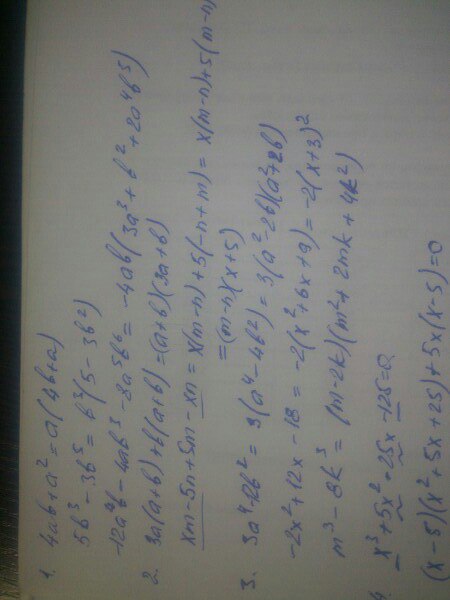 1. 4ab+a²=a(4b+a)
5b³-3b⁵=b³(5-3b²)
-12a⁴b-4ab³-8a⁵b⁶=-4ab(3a³+b²+2a⁴b⁵)
2. 3a(a+b)+b(a+b)=(a+b)(3a+b)
xm-5n+5m-xn=x(m-n)+5(-n+m)=x(m-n)+5(m-n)
=(m-n)(x+5)
3. 3a⁴-12b²=3(a⁴-4b²)=3(a²-2b)(a²+2b)
-2x²+12x-18=-2(x²+6x+9)=-2(x+3)²
m³-8k³=(m-2k)(m²+2mk+4k²)
4. x³+5x²+25x-125=0
(x-5)(x²+5x+25)+5x(x-5)=0